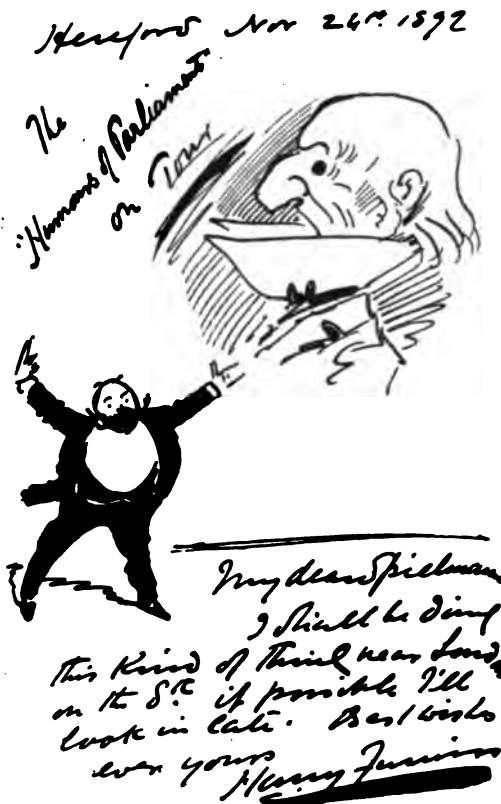 Hereford Nov 24th 1892
The
"Humours of Parliament"
on Tour
My dear Spielmann
I shall be doing
this kind of thing near Lond
on the 8th if possible I'll
look in late. Best wishes
ever yours
Harry Furniss